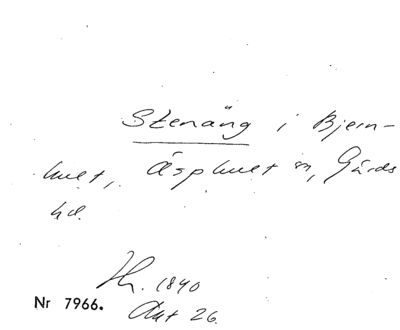 Stenäng i Bjern-
hult, Äsphult sn, Gärds
hd.
Hr. 1840
Akt 26.
Nr 7966.